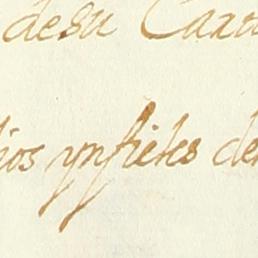 desu Caxa
ios ynfieles de